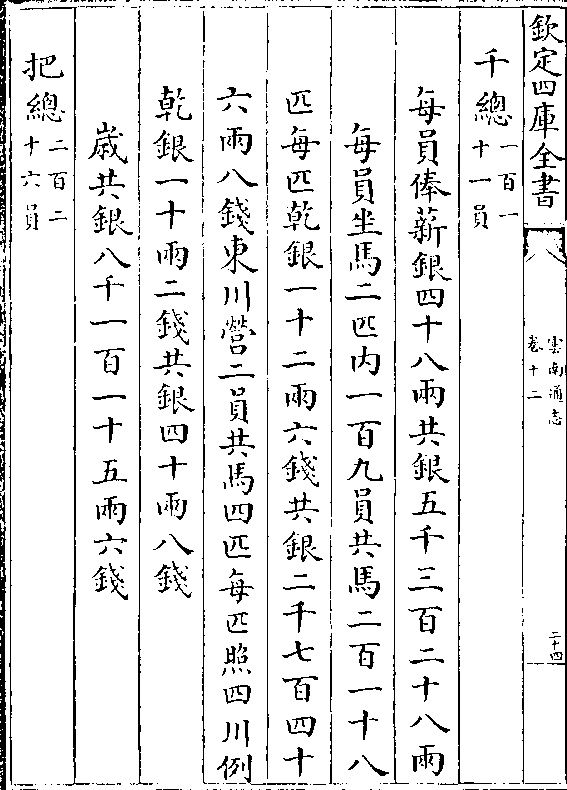 欽定四庫全書
雲南通志
卷十二
二十四
千總一百一
十一員
每員俸薪銀四十八兩共銀五千三百二十八兩
每員坐馬二匹内一百九員共馬二百一十八
匹每匹乾銀一十二兩六錢共銀二千七百四十
六兩八錢東川營二員共馬四匹每匹照四川例
乾銀一十兩二錢共銀四十兩八錢
歲共銀八千一百一十五兩六錢
把總二百二
十六員